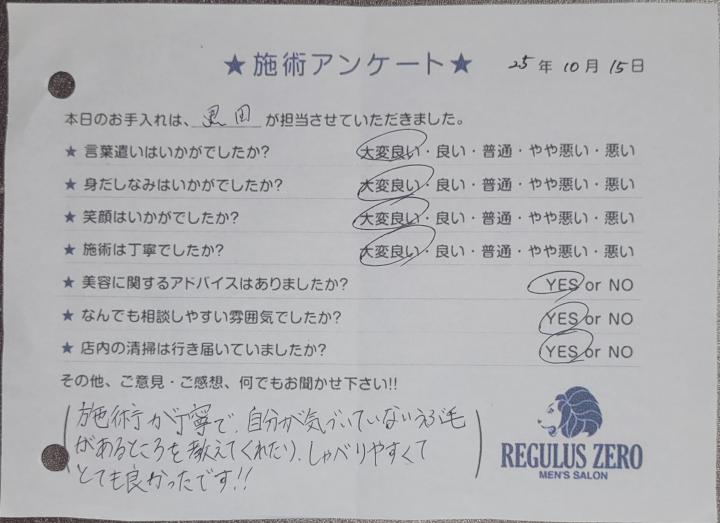 ★施術アンケート★ 25年10月15日
本日のお手入れは、黒田が担当させていただきました。
★ 言葉遣いはいかがでしたか? 大変良い・良い・普通・やや悪い・悪い
★ 身だしなみはいかがでしたか? 大変良い・良い・普通・やや悪い・悪い
★ 笑顔はいかがでしたか? 大変良い・良い・普通・やや悪い・悪い
★ 施術は丁寧でしたか? 大変良い・良い・普通・やや悪い・悪い
★ 美容に関するアドバイスはありましたか? YES or NO
★ なんでも相談しやすい雰囲気でしたか? YES or NO
★ 店内の清掃は行き届いていましたか? YES or NO
その他、ご意見・ご感想、何でもお聞かせ下さい!!
施術が丁寧で、自分が気づいていないうぶ毛
があるところを教えてくれたり、しゃべりやすくて
とても良かったです!!
REGULUS ZERO
MEN'S SALON